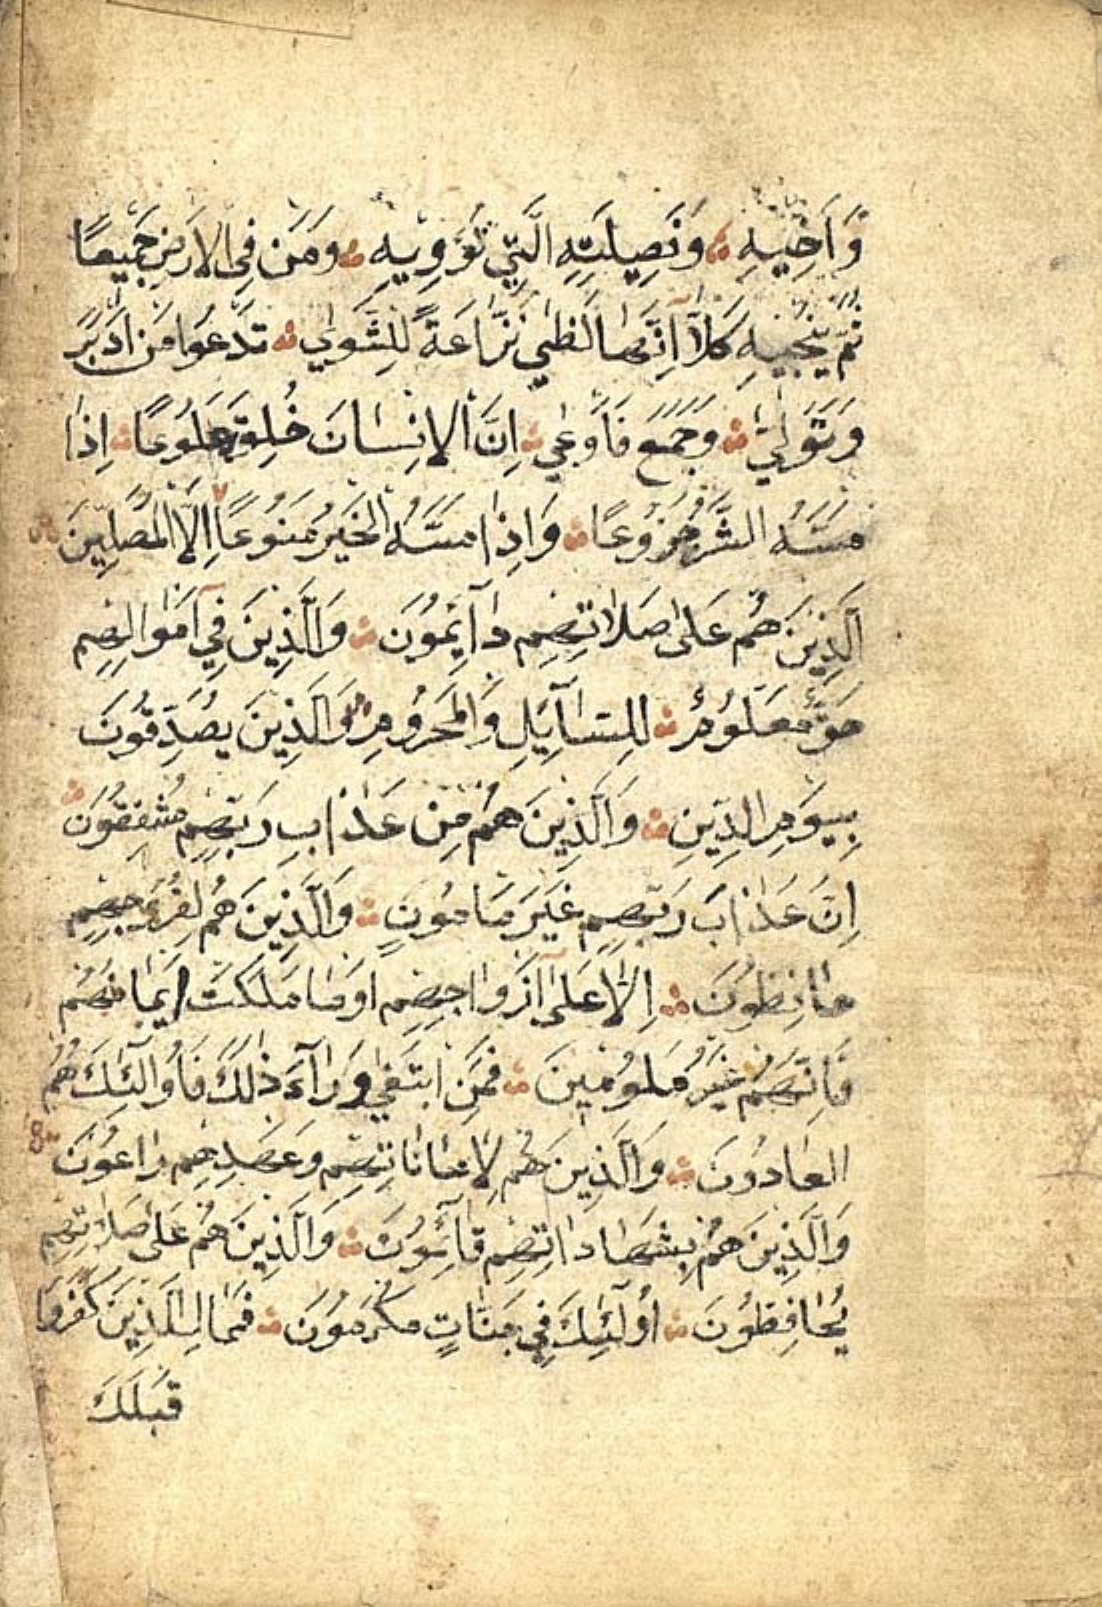 وَاَخِيهِ وَفَصِيلَتِهِ الَّتِي تُؤْوِيهِ وَمَنْ فِي الْاَرْضِ جَمِيعًا
ثُمَّ يُنْجِيهِ كَلَّا اِنَّهَا لَظٰى نَزَّاعَةً لِلشَّوٰى تَدْعُوا مَنْ اَدْبَرَ
وَتَوَلّٰى وَجَمَعَ فَاَوْعٰى اِنَّ الْاِنْسَانَ خُلِقَ هَلُوعًا اِذَا
مَسَّهُ الشَّرُّ جَزُوعًا وَاِذَا مَسَّهُ الْخَيْرُ مَنُوعًا اِلَّا الْمُصَلِّينَ
اَلَّذِينَ هُمْ عَلٰى صَلَاتِهِمْ دَآئِمُونَ وَالَّذِينَ فِي اَمْوَالِهِمْ
حَقٌّ مَعْلُومٌ لِلسَّآئِلِ وَالْمَحْرُومِ وَالَّذِينَ يُصَدِّقُونَ
بِيَوْمِ الدِّينِ وَالَّذِينَ هُمْ مِنْ عَذَابِ رَبِّهِمْ مُشْفِقُونَ
اِنَّ عَذَابَ رَبِّهِمْ غَيْرُ مَامُونٍ وَالَّذِينَ هُمْ لِفُرُوجِهِمْ
حَافِظُونَ اِلَّا عَلٰى اَزْوَاجِهِمْ اَوْ مَا مَلَكَتْ اَيْمَانُهُمْ
فَاِنَّهُمْ غَيْرُ مَلُومِينَ فَمَنِ ابْتَغٰى وَرَآءَ ذٰلِكَ فَاُولٰئِكَ هُمُ
الْعَادُونَ وَالَّذِينَ هُمْ لِاَمَانَاتِهِمْ وَعَهْدِهِمْ رَاعُونَ
وَالَّذِينَ هُمْ بِشَهَادَاتِهِمْ قَآئِمُونَ وَالَّذِينَ هُمْ عَلٰى صَلَاتِهِمْ
يُحَافِظُونَ اُولٰئِكَ فِي جَنَّاتٍ مُكْرَمُونَ فَمَالِ الَّذِينَ كَفَرُوا
قِبَلَكَ